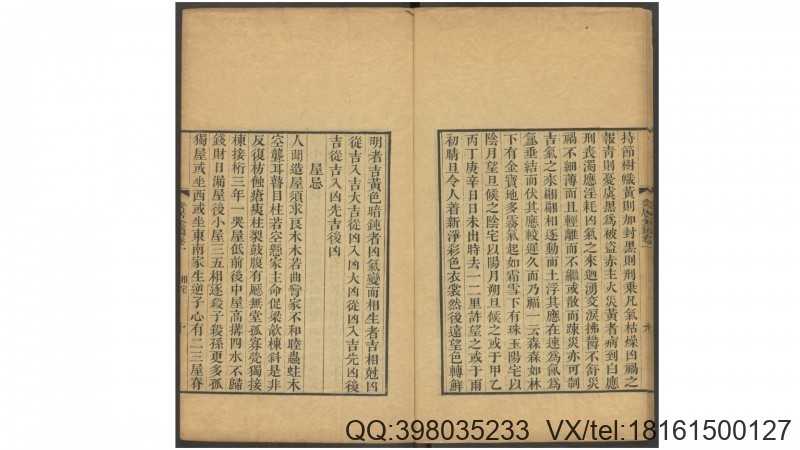 持節樹幟黃則加封黑則刑喪凡氣枯燥凶禍之
報青則憂虞黑為被盜赤主火災黃者病到白應
刑喪濁應淫耗凶氣之來迴湧交淚拂鬱不舒災
禍不細薄而且輕離而不繼或散而疎災亦可制
吉氣之來翩翩相逐動而土浮其應在速為佩為
氳垂結而伏其應較遲久而乃福一云森森如林
下有金寶地多霧氣起如霜雪下有珠玉陽宅以
陰月望旦候之陰宅以陽月朔旦候之或于甲乙
丙丁庚辛日日未出時去一二里許望之或于雨
初晴旦令人着新淨彩色衣裳然後遠望色轉鮮
明者吉黃色暗鈍者凶氣變而相生者吉相尅凶
從吉入吉大吉從凶入凶大凶從凶入吉先凶後
吉從吉入凶先吉後凶
屋忌
人間造屋須求良木木若曲彎家不和睦蟲蛀木
空聾耳瞽目柱若空懸家主命促梁欹棟斜是非
反復朽蝕瘡痍柱裂鼓腹有廳無堂孤寡煢獨接
棟接桁三年一哭屋低前後中屋高搆四水不歸
錢財日漏屋後小屋三五相逐殺子殺孫更多孤
獨屋或坐西或坐東南家生逆子心有二三屋脊
QQ:398035233 VX/tel:18161500127